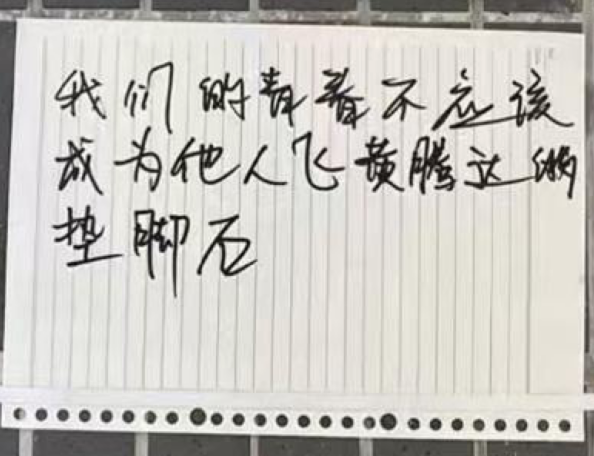 我们的青春不应该
成为他人飞黄腾达的
垫脚石